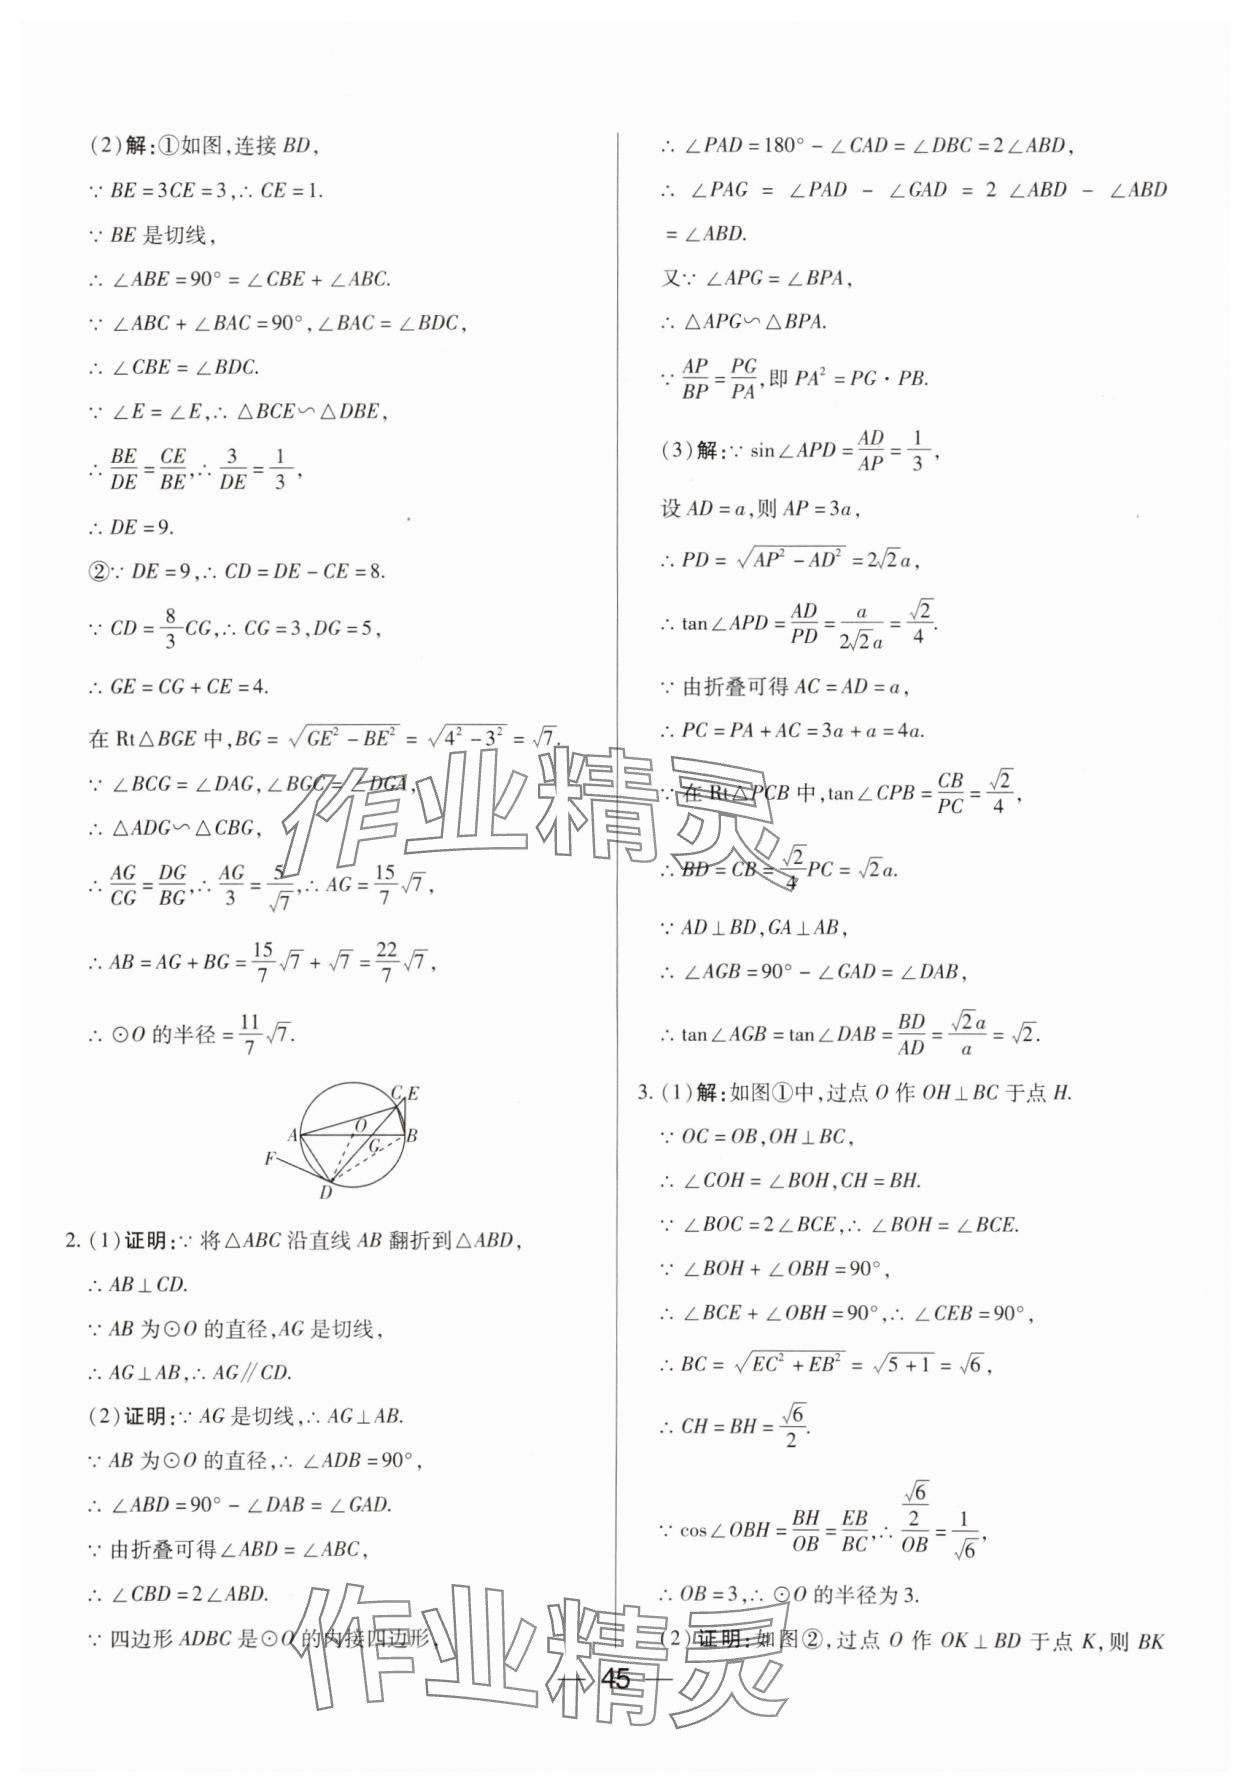 (2)解:①如图,连接 BD,
∵ BE=3CE=3,∴ CE=1.
∵ BE 是切线,
∴ ∠ABE=90°=∠CBE+∠ABC.
∵ ∠ABC+∠BAC=90°,∠BAC=∠BDC,
∴ ∠CBE=∠BDC.
∵ ∠E=∠E,∴ △BCE∽△DBE,
∴ BE/DE=CE/BE,∴ 3/DE=1/3,
∴ DE=9.
②∵ DE=9,∴ CD=DE-CE=8.
∵ CD=8/3CG,∴ CG=3,DG=5,
∴ GE=CG+CE=4.
在 Rt△BGE 中,BG=√(GE²-BE²)=√(4²-3²)=√7.
∵ ∠BCG=∠DAG,∠BGC=∠DGA,
∴ △ADG∽△CBG,
∴ AG/CG=DG/BG,∴ AG/3=5/√7,∴ AG=15/7√7,
∴ AB=AG+BG=15/7√7+√7=22/7√7,
∴ ⊙O 的半径=11/7√7.
C E
A O B
G
F
D
2. (1)证明:∵ 将△ABC 沿直线 AB 翻折到△ABD,
∴ AB⊥CD.
∵ AB 为⊙O 的直径,AG 是切线,
∴ AG⊥AB,∴ AG∥CD.
(2)证明:∵ AG 是切线,∴ AG⊥AB.
∵ AB 为⊙O 的直径,∴ ∠ADB=90°,
∴ ∠ABD=90°-∠DAB=∠GAD.
∵ 由折叠可得∠ABD=∠ABC,
∴ ∠CBD=2∠ABD.
∵ 四边形 ADBC 是⊙O 的内接四边形,
∴ ∠PAD=180°-∠CAD=∠DBC=2∠ABD,
∴ ∠PAG = ∠PAD - ∠GAD = 2∠ABD - ∠ABD
=∠ABD.
又∵ ∠APG=∠BPA,
∴ △APG∽△BPA.
∵ AP/BP=PG/PA,即 PA²=PG·PB.
(3)解:∵ sin∠APD=AD/AP=1/3,
设 AD=a,则 AP=3a,
∴ PD=√(AP²-AD²)=2√2a,
∴ tan∠APD=AD/PD=a/2√2a=√2/4.
∵ 由折叠可得 AC=AD=a,
∴ PC=PA+AC=3a+a=4a.
∵ 在 Rt△PCB 中,tan∠CPB=CB/PC=√2/4,
∴ BD=CB=√2/4PC=√2a.
∵ AD⊥BD,GA⊥AB,
∴ ∠AGB=90°-∠GAD=∠DAB,
∴ tan∠AGB=tan∠DAB=BD/AD=√2a/a=√2.
3. (1)解:如图①中,过点 O 作 OH⊥BC 于点 H.
∵ OC=OB,OH⊥BC,
∴ ∠COH=∠BOH,CH=BH.
∵ ∠BOC=2∠BCE,∴ ∠BOH=∠BCE.
∵ ∠BOH+∠OBH=90°,
∴ ∠BCE+∠OBH=90°,∴ ∠CEB=90°,
∴ BC=√(EC²+EB²)=√(5+1)=√6,
∴ CH=BH=√6/2.
∵ cos∠OBH=BH/OB=EB/BC,∴ (√6/2)/OB=1/√6,
∴ OB=3,∴ ⊙O 的半径为 3.
(2)证明:如图②,过点 O 作 OK⊥BD 于点 K,则 BK
— 45 —
作业精灵
作业精灵